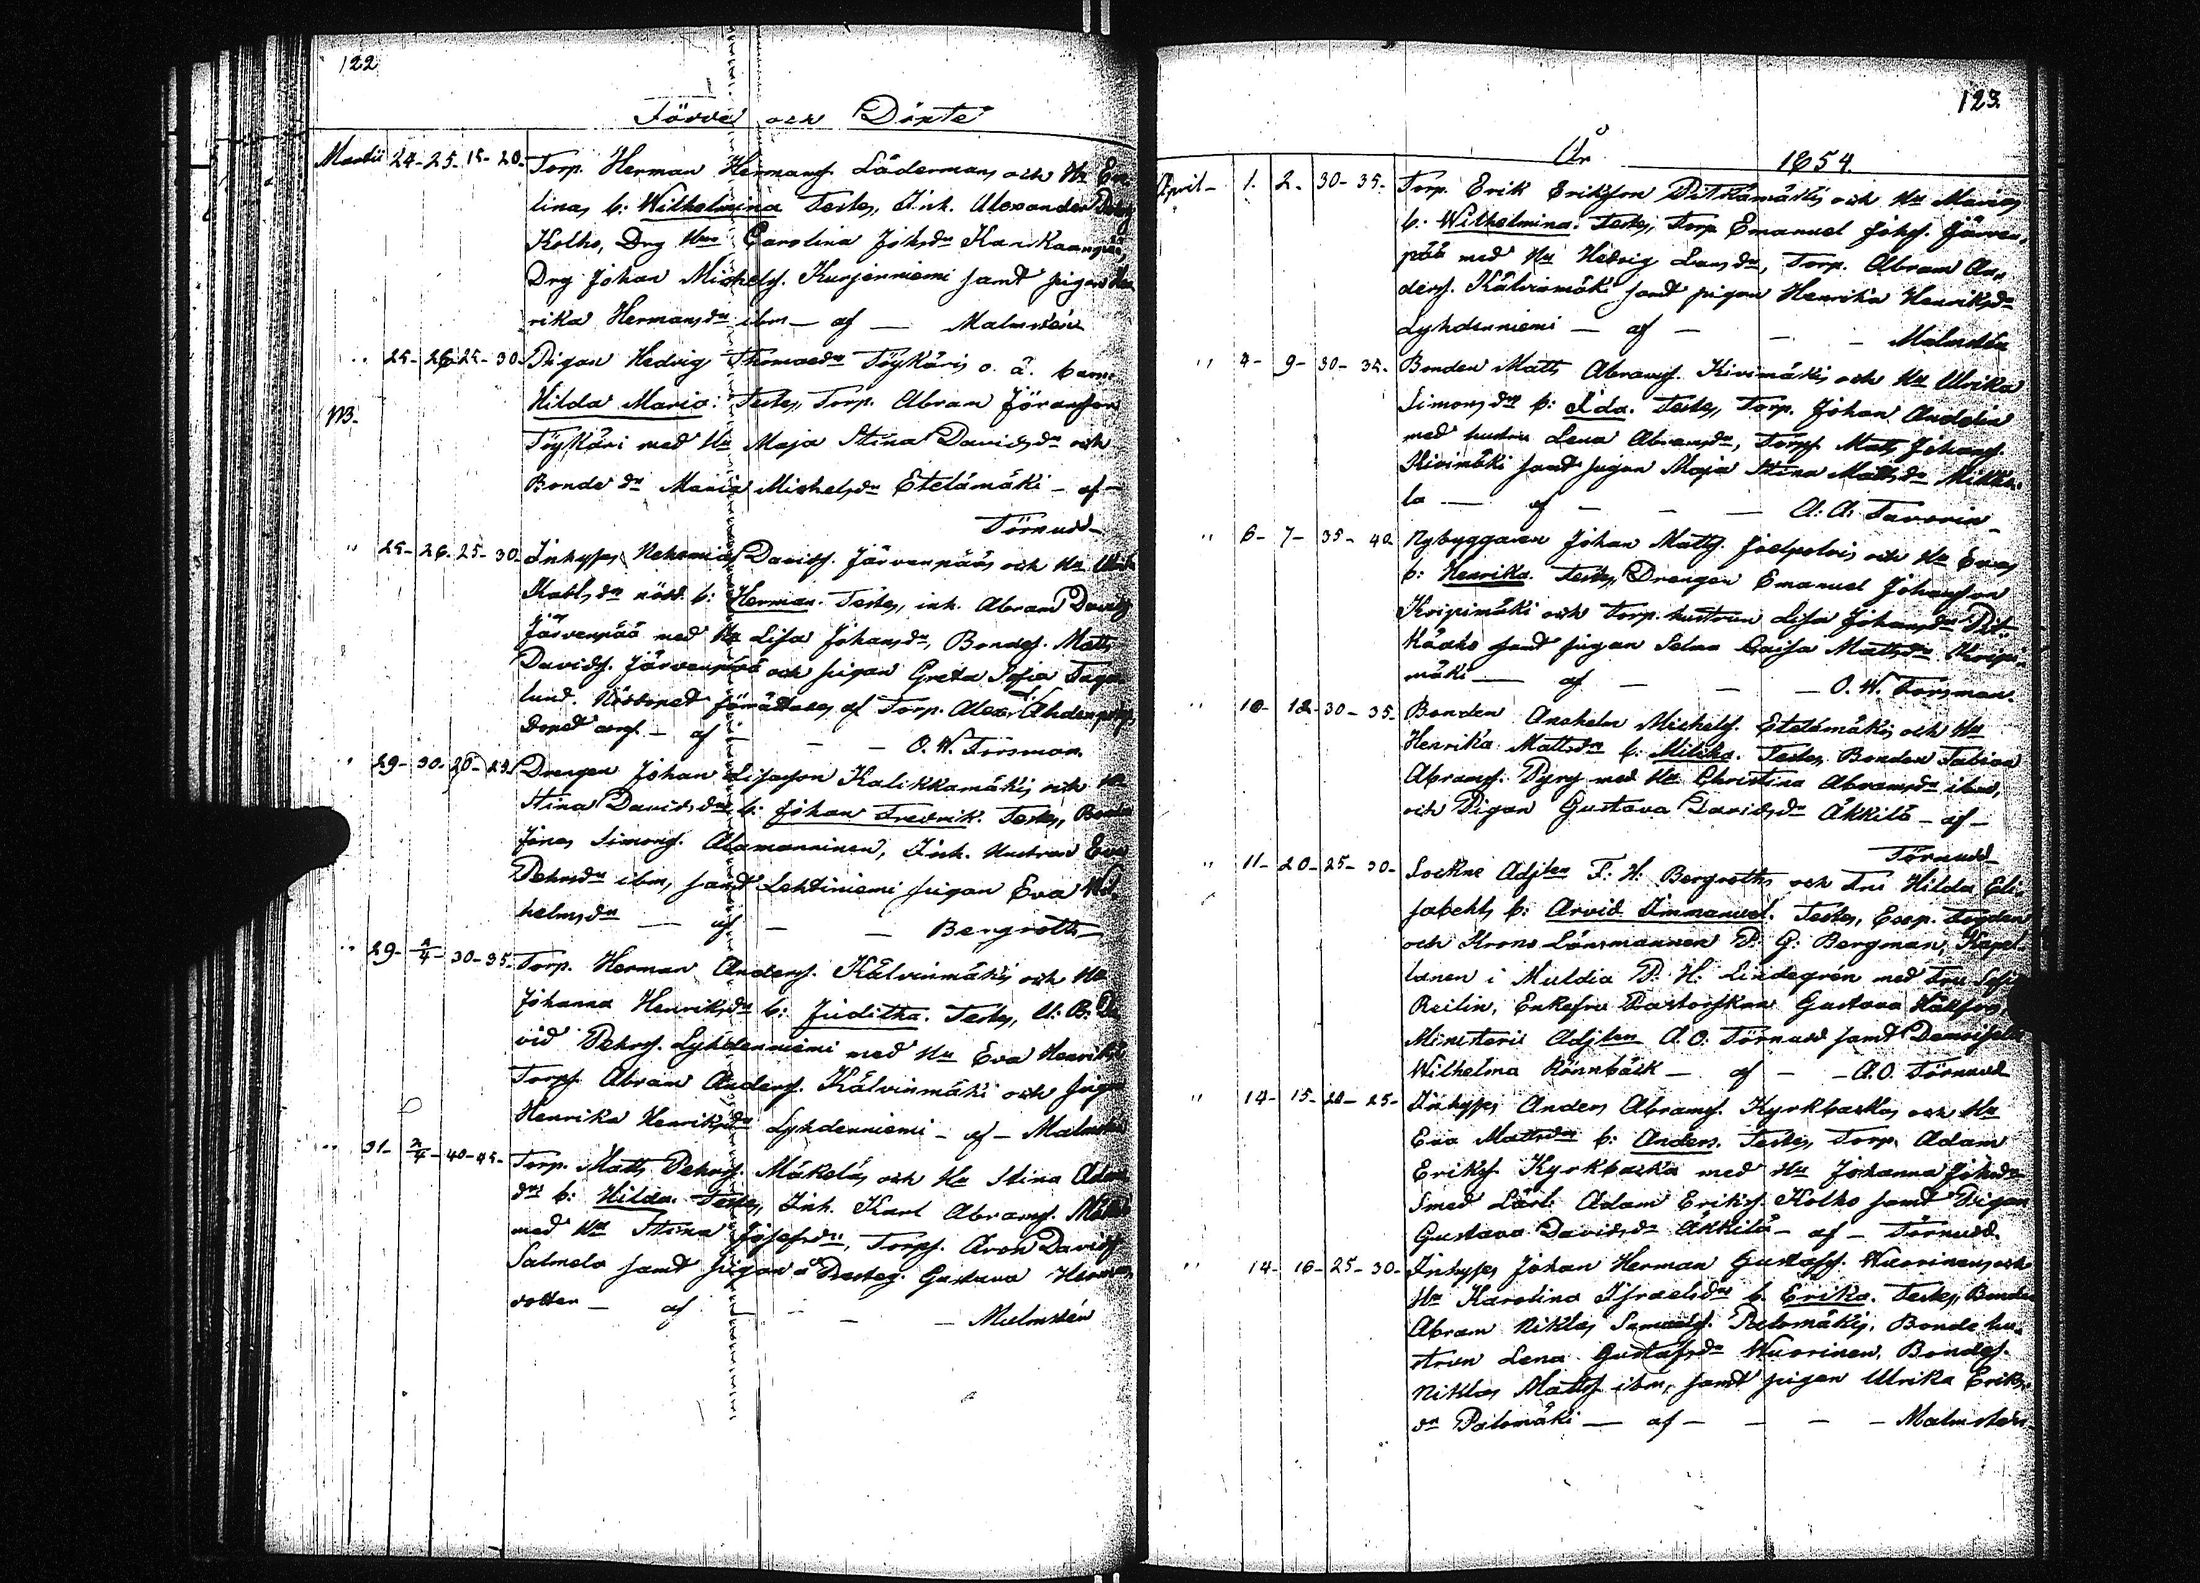 122
Födde och Döpte
Martii 24- 25- 15- 20- Torp. Herman Hermansf. Lädermans och Hu Eve-
linas b: Wilhelmina Testes, Inh. Alexander
Kolho, Drg Hermans Carolina Johsdr Karikaanpää,
Drg Johan Michelsf. Kurjenniemi samt pigan Hen
rika Hermansdr ibm — af — Malmstén
" 25- 26 25- 30- Pigan Hedvig Thomaedr Töykäris o. ä. barn
NB. Hilda Maria: Testes, Torp. Abram Göransson
Töykäri med Hu Maja Stina Davidsdr och
Bonde dr Maria Michelsdr Etelämäki — af —
Törnudd
" 25- 26- 25- 30- Inhyses Nehemia Davidsf. Järvenpääs och Hu
Karlsdr nöd. b: Herman. Testes, inh. Abram Davidsf
Järvenpää med Hu Lisa Johansdr, Bondes. Matts
Davidsf. Järvenpää och pigan Greta Sofia
lund. Nöddopet förrättades af Torp. Alex.
dopet — af — — O. W. Forsman.
" 29- 30- 20- 25 Drengen Johan Kalikkamäkis och Hu
Stina Davidsdrs b: Johan Fredrik. Testes, Bonden
Jonas Simonsf. Alamanninen, Inh. Hustrun Eva
Pehrsdr ibm, samt Lehtiniemi pigan Eva Wil-
helmsdr — af — — Bergroth
" 29- 2/4- 30- 35- Torp. Herman Andersf. Kälvinmäkis och Hu
Johanna Henriksdr b: Juditha. Testes, U. B: Da
vid Pehrsf. Lyhdenniemi med Hu Eva Henriksd
Torps. Abram Andersf. Kälvinmäki och pigan
Henrika Henriksdr Lyhdenniemi — af — Malmstén
" 31- 2/4- 40- 45- Torp. Matts Pehrsf. Mäkeläs och Hu Stina Adams
drs b: Hilda. Testes, Inh. Karl Abramsf. Mäkelä
med Hu Stina Josefsdr, Torps. Aron Davidsf
Salmela samt pigan å Presteg. Gustava Hermans
dotter — af — — — Malmstén
123.
År 1854.
April- 1. 2- 30- 35- Torp. Erik Eriksson Pitkämäkis och Hu Marias
b: Wilhelmina. Testes, Torp. Emanuel Johsf. Järven-
pää med Hu Hedvig Larsdr, Torp. Abram An-
dersf. Kälvinmäki samt pigan Henrika Henriksdr
Lyhdenniemi — af — — Malmstén
" 4- 9- 30- 35- Bonden Matts Abramsf. Kivimäkis och Hu Ulrika
Simonsdrs b: Ida. Testes, Torp. Johan Andelin
med hustru Lena Abramsdr, Torps. Matts Johansf.
Kivimäki samt pigan Maja Stina Mattsdr Mikko-
la — af — — — A. A. Favorin
" 6- 7- 35- 40- Nybyggaren Johan Mattsf. Joelpolvis och Hu Evas
b: Henrika. Testes, Drengen Emanuel Johansson
Koipimäki och Torp. hustrun Lisa Johansdr Pit-
käaho samt pigan Selma Caisa Mattsdr Koipi-
mäki — af — — — O. W. Forsman.
" 10- 12- 30- 35- Bonden Anshelm Michelsf. Etelämäkis och Hu
Henrika Mattsdrs b: Milika. Testes, Bonden Fabian
Abramsf. Pyry med Hu Christina Abramsdr ibm,
och Pigan Gustava Davidsdr Äkkilä — af —
Törnudd
" 11- 20- 25- 30- Sockne Adjten F. H. Bergroths och Fru Hilda Eli-
sabeths b: Arvid Immanuel. Testes, Exp. Fogden
och Krono Länsmannen P. G: Bergman, Kapel
lanen i Muldia P. H. Lindegrén med Fru Sofia
Reilin, Enkefru Pastorskan Gustava Hällfors,
Ministerii Adjten A. O. Törnudd samt Demoiselle
Wilhelma Rönnbäck — af — — A. O. Törnudd
" 14- 15- 20- 25- Inhyses Anders Abramsf. Kyrkbackas och Hu
Eva Mattsdrs b: Anders. Testes, Torp. Adam
Eriksf. Kyrkbacka med Hu Johanna Johsdr
Smed Lärl. Adam Eriksf. Kolho samt Pigan
Gustava Davidsdr Äkkilä — af — Törnudd.
" 14- 16- 25- 30- Inhyses Johan Herman Gustafsf. Wuorinens och
Hu Karolina Israelsdrs b. Erika. Testes, Bonden
Abram Niklas Samuelsf. Palomäki, Bonde hu-
strun Lena Gustafsdr Wuorinen, Bondes.
Niklas Mattsf ibm, samt pigan Ulrika Eriks-
dr Palomäki — af — — — Malmstén